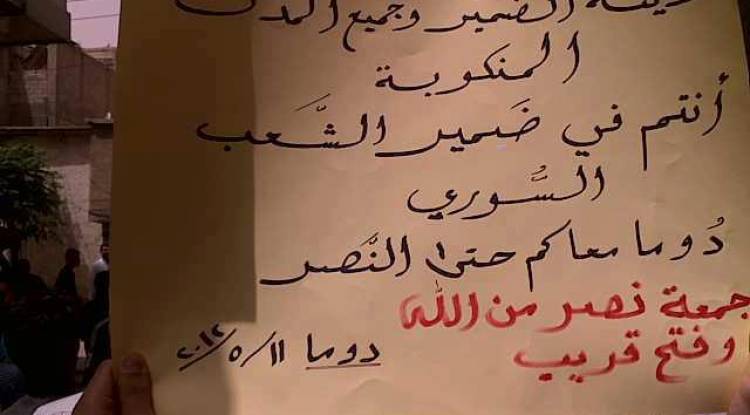 الضمير وجميع المدن
المنكوبة
أنتم في ضَمير الشَّعب
السُّوري
دُوما معاكم حتى النَّصر
جمعة نصر من الله
وفتح قريب
دوما ١١/٥/٢٠١٢